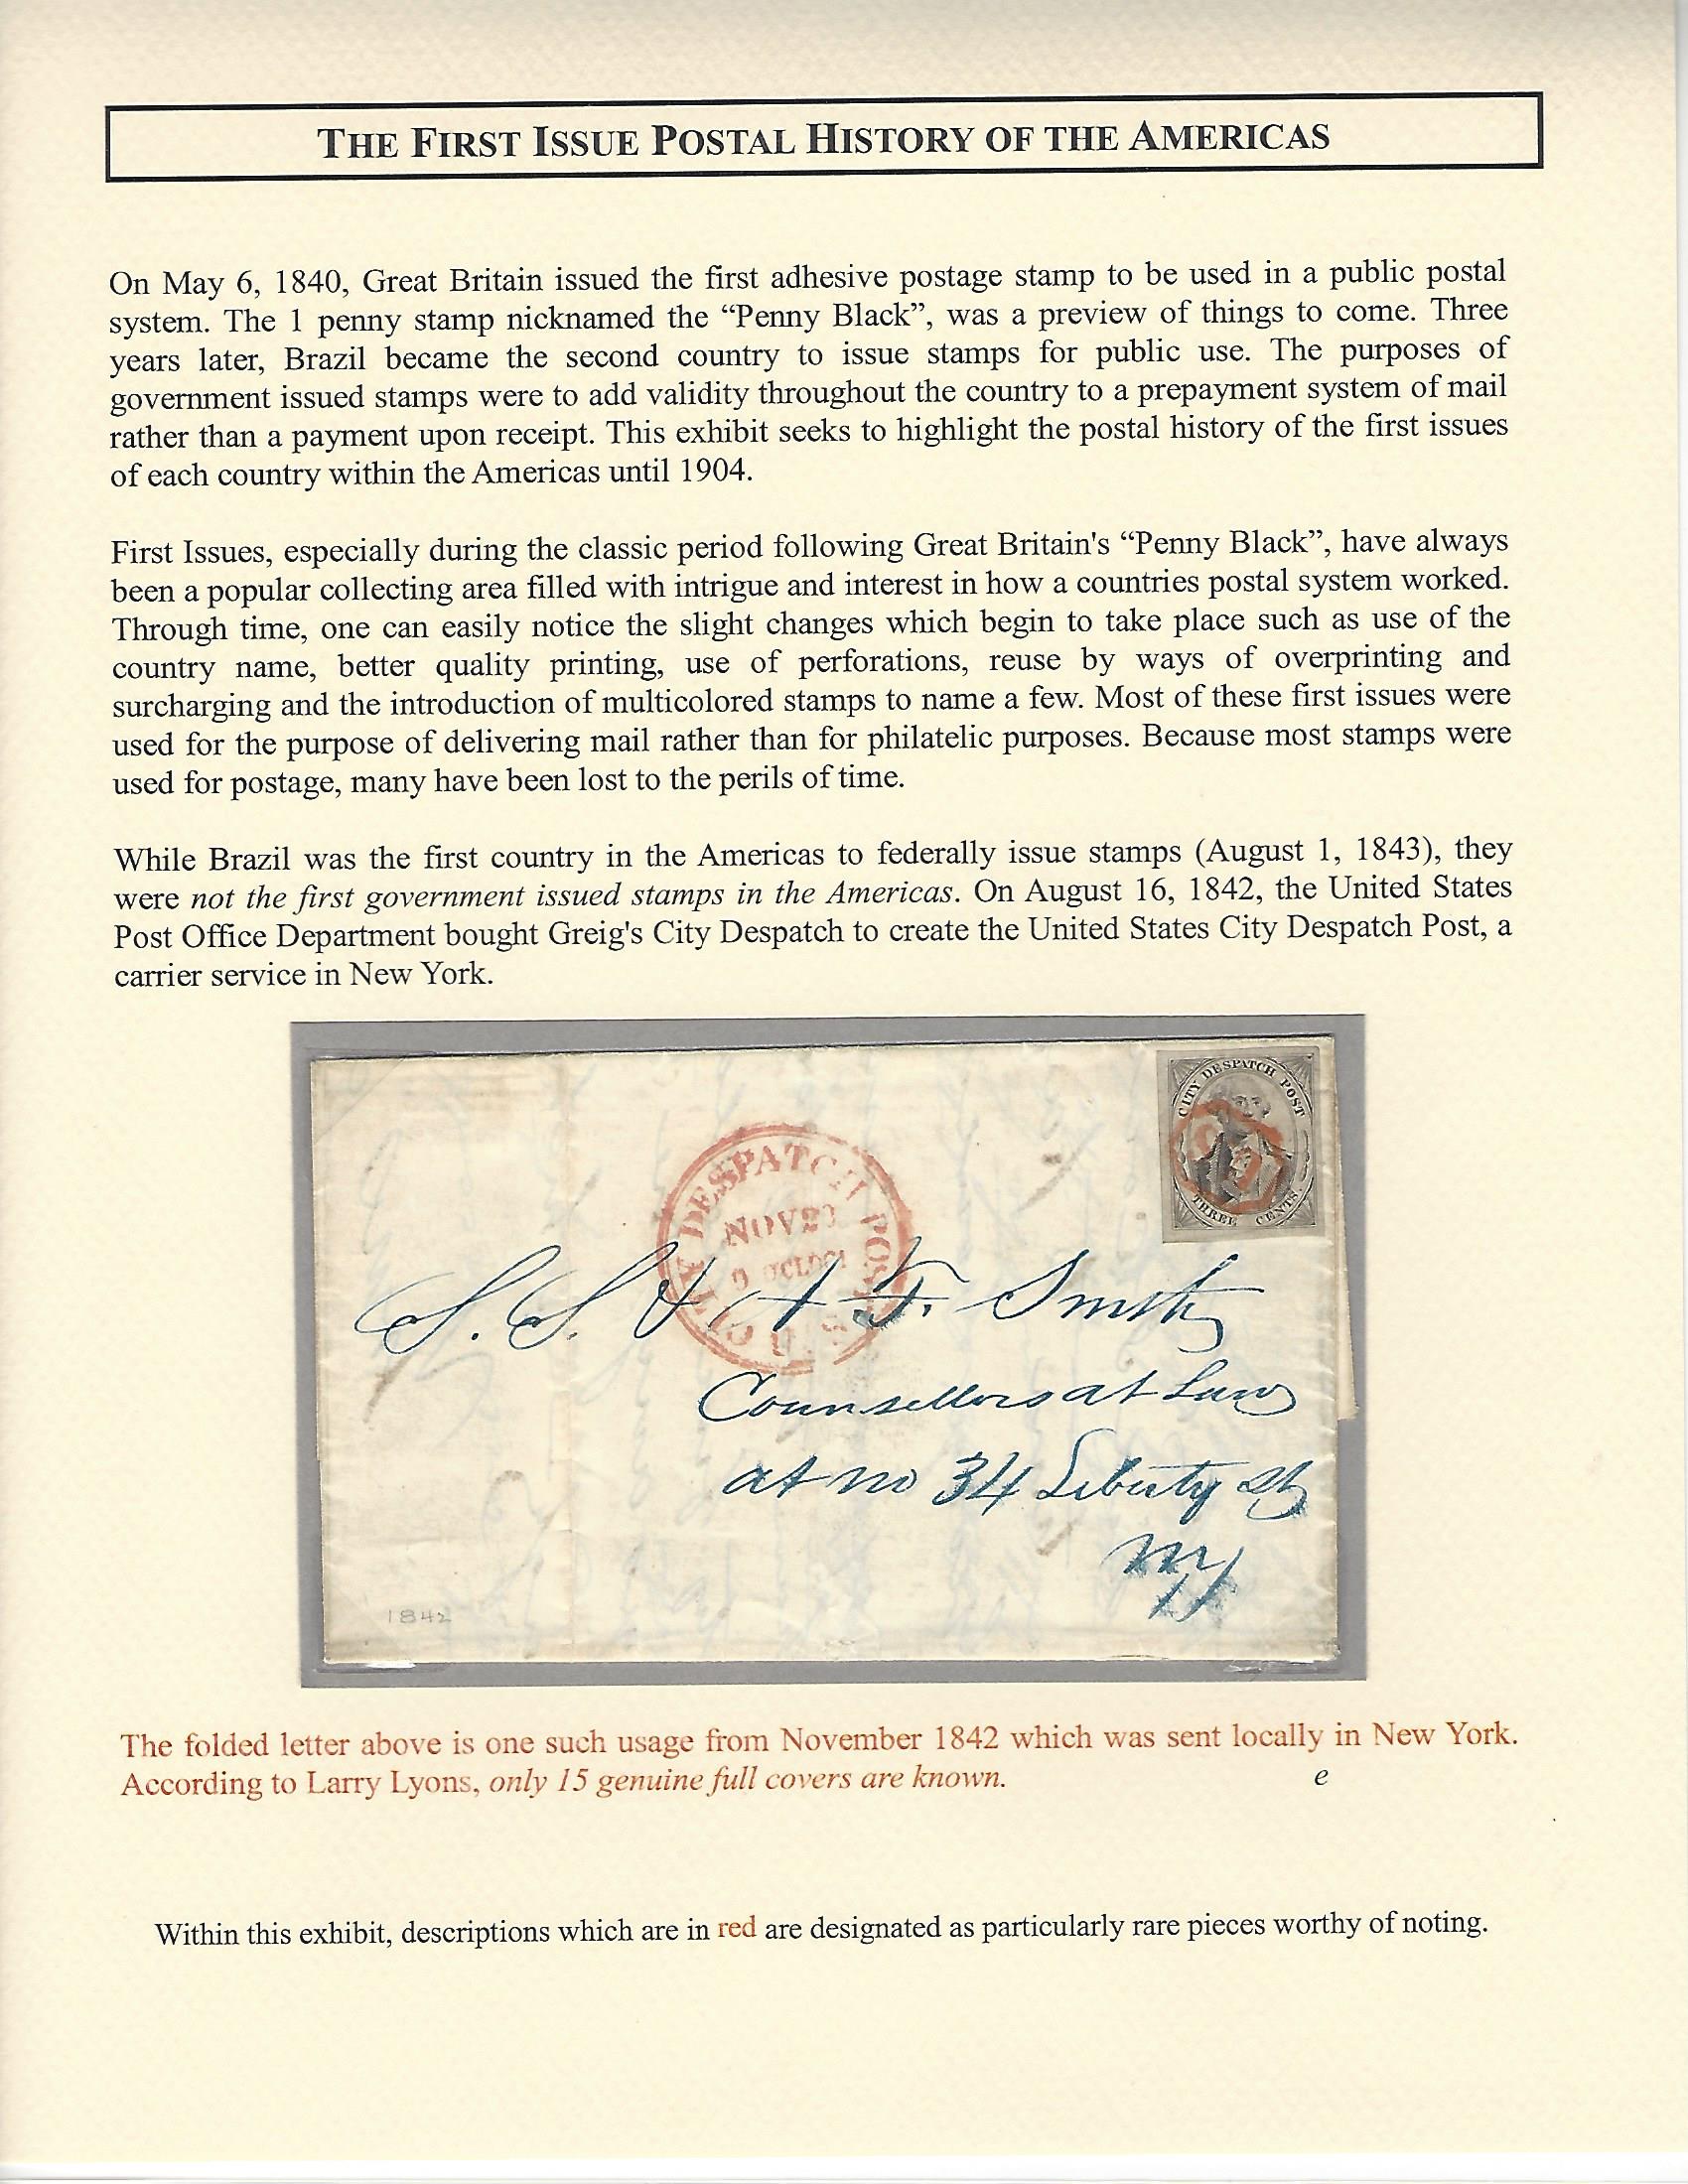 THE FIRST ISSUE POSTAL HISTORY OF THE AMERICAS
On May 6, 1840, Great Britain issued the first adhesive postage stamp to be used in a public postal
system. The 1 penny stamp nicknamed the “Penny Black”, was a preview of things to come. Three
years later, Brazil became the second country to issue stamps for public use. The purposes of
government issued stamps were to add validity throughout the country to a prepayment system of mail
rather than a payment upon receipt. This exhibit seeks to highlight the postal history of the first issues
of each country within the Americas until 1904.
First Issues, especially during the classic period following Great Britain's “Penny Black”, have always
been a popular collecting area filled with intrigue and interest in how a countries postal system worked.
Through time, one can easily notice the slight changes which begin to take place such as use of the
country name, better quality printing, use of perforations, reuse by ways of overprinting and
surcharging and the introduction of multicolored stamps to name a few. Most of these first issues were
used for the purpose of delivering mail rather than for philatelic purposes. Because most stamps were
used for postage, many have been lost to the perils of time.
While Brazil was the first country in the Americas to federally issue stamps (August 1, 1843), they
were not the first government issued stamps in the Americas. On August 16, 1842, the United States
Post Office Department bought Greig's City Despatch to create the United States City Despatch Post, a
carrier service in New York.
CITY DESPATCH POST
THREE CENTS
CITY DESPATCH POST
U.S
S. S. & A F. Smith
Counsellors at Law
at no 34 Liberty St
NY
1842
The folded letter above is one such usage from November 1842 which was sent locally in New York.
According to Larry Lyons, only 15 genuine full covers are known.
e
Within this exhibit, descriptions which are in red are designated as particularly rare pieces worthy of noting.